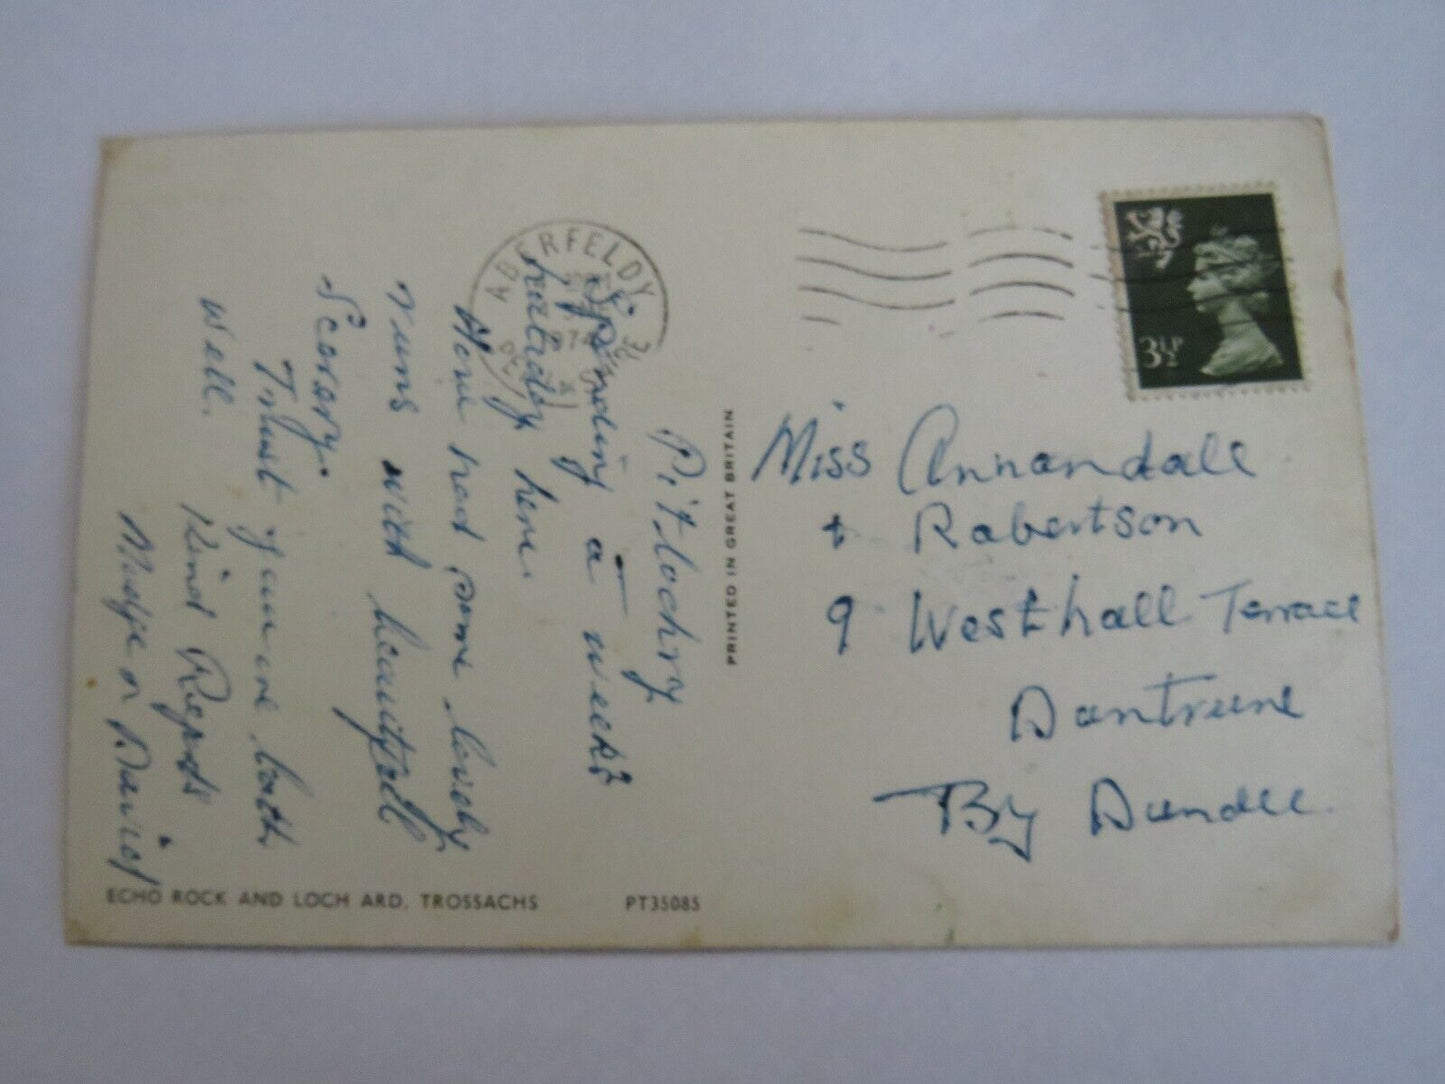 Pitlochry
Spending a week's
holiday here.
Have had some lovely
runs with beautiful
Scenery.
Trust you are both
well.
Kind Regards
Madge &
ABERFELDY
974
PRINTED IN GREAT BRITAIN
3½P
Miss Annandale
+ Robertson
9 Westhall Terrace
Duntrune
By Dundee.
ECHO ROCK AND LOCH ARD, TROSSACHS PT35085